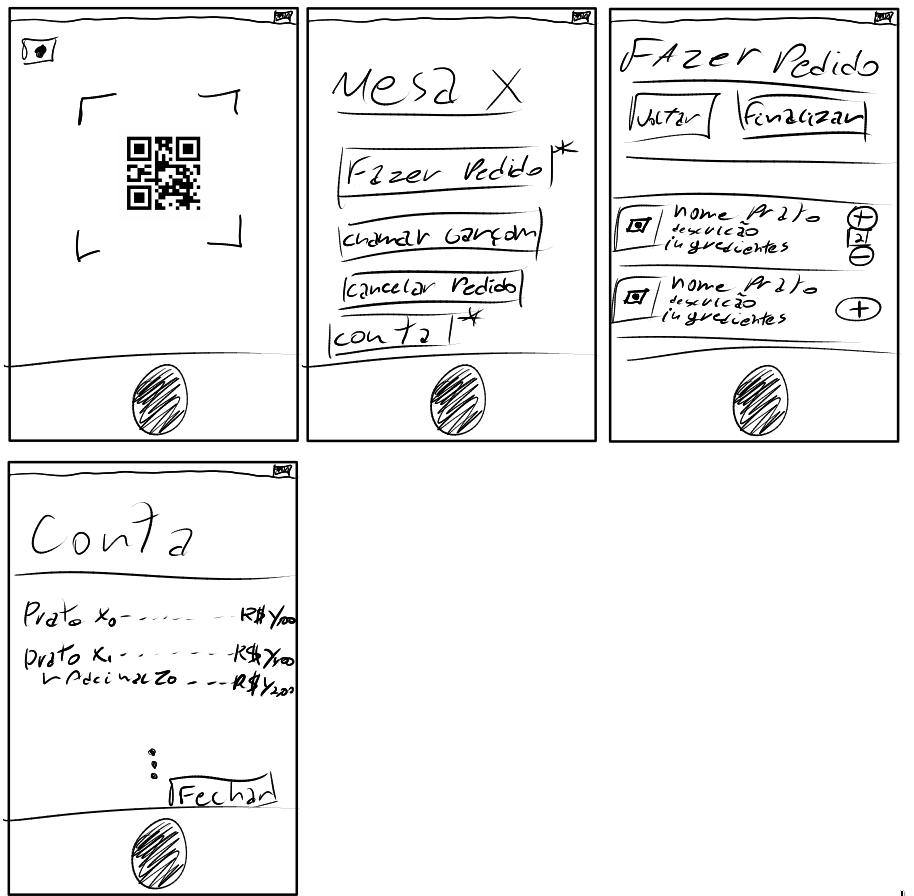 Mesa X
Fazer Pedido *
chamar Garçom
cancelar Pedido
conta *
FAzer Pedido
Voltar
Finalizar
nome Prato
descrição
ingredientes
+
2
-
nome Prato
descrição
ingredientes
+
Conta
Prato X₀ - - - - - - - - R$ Y,00
Prato X₁ - - - - - - - - R$ Y,00
R$ Y2,00
Fechar